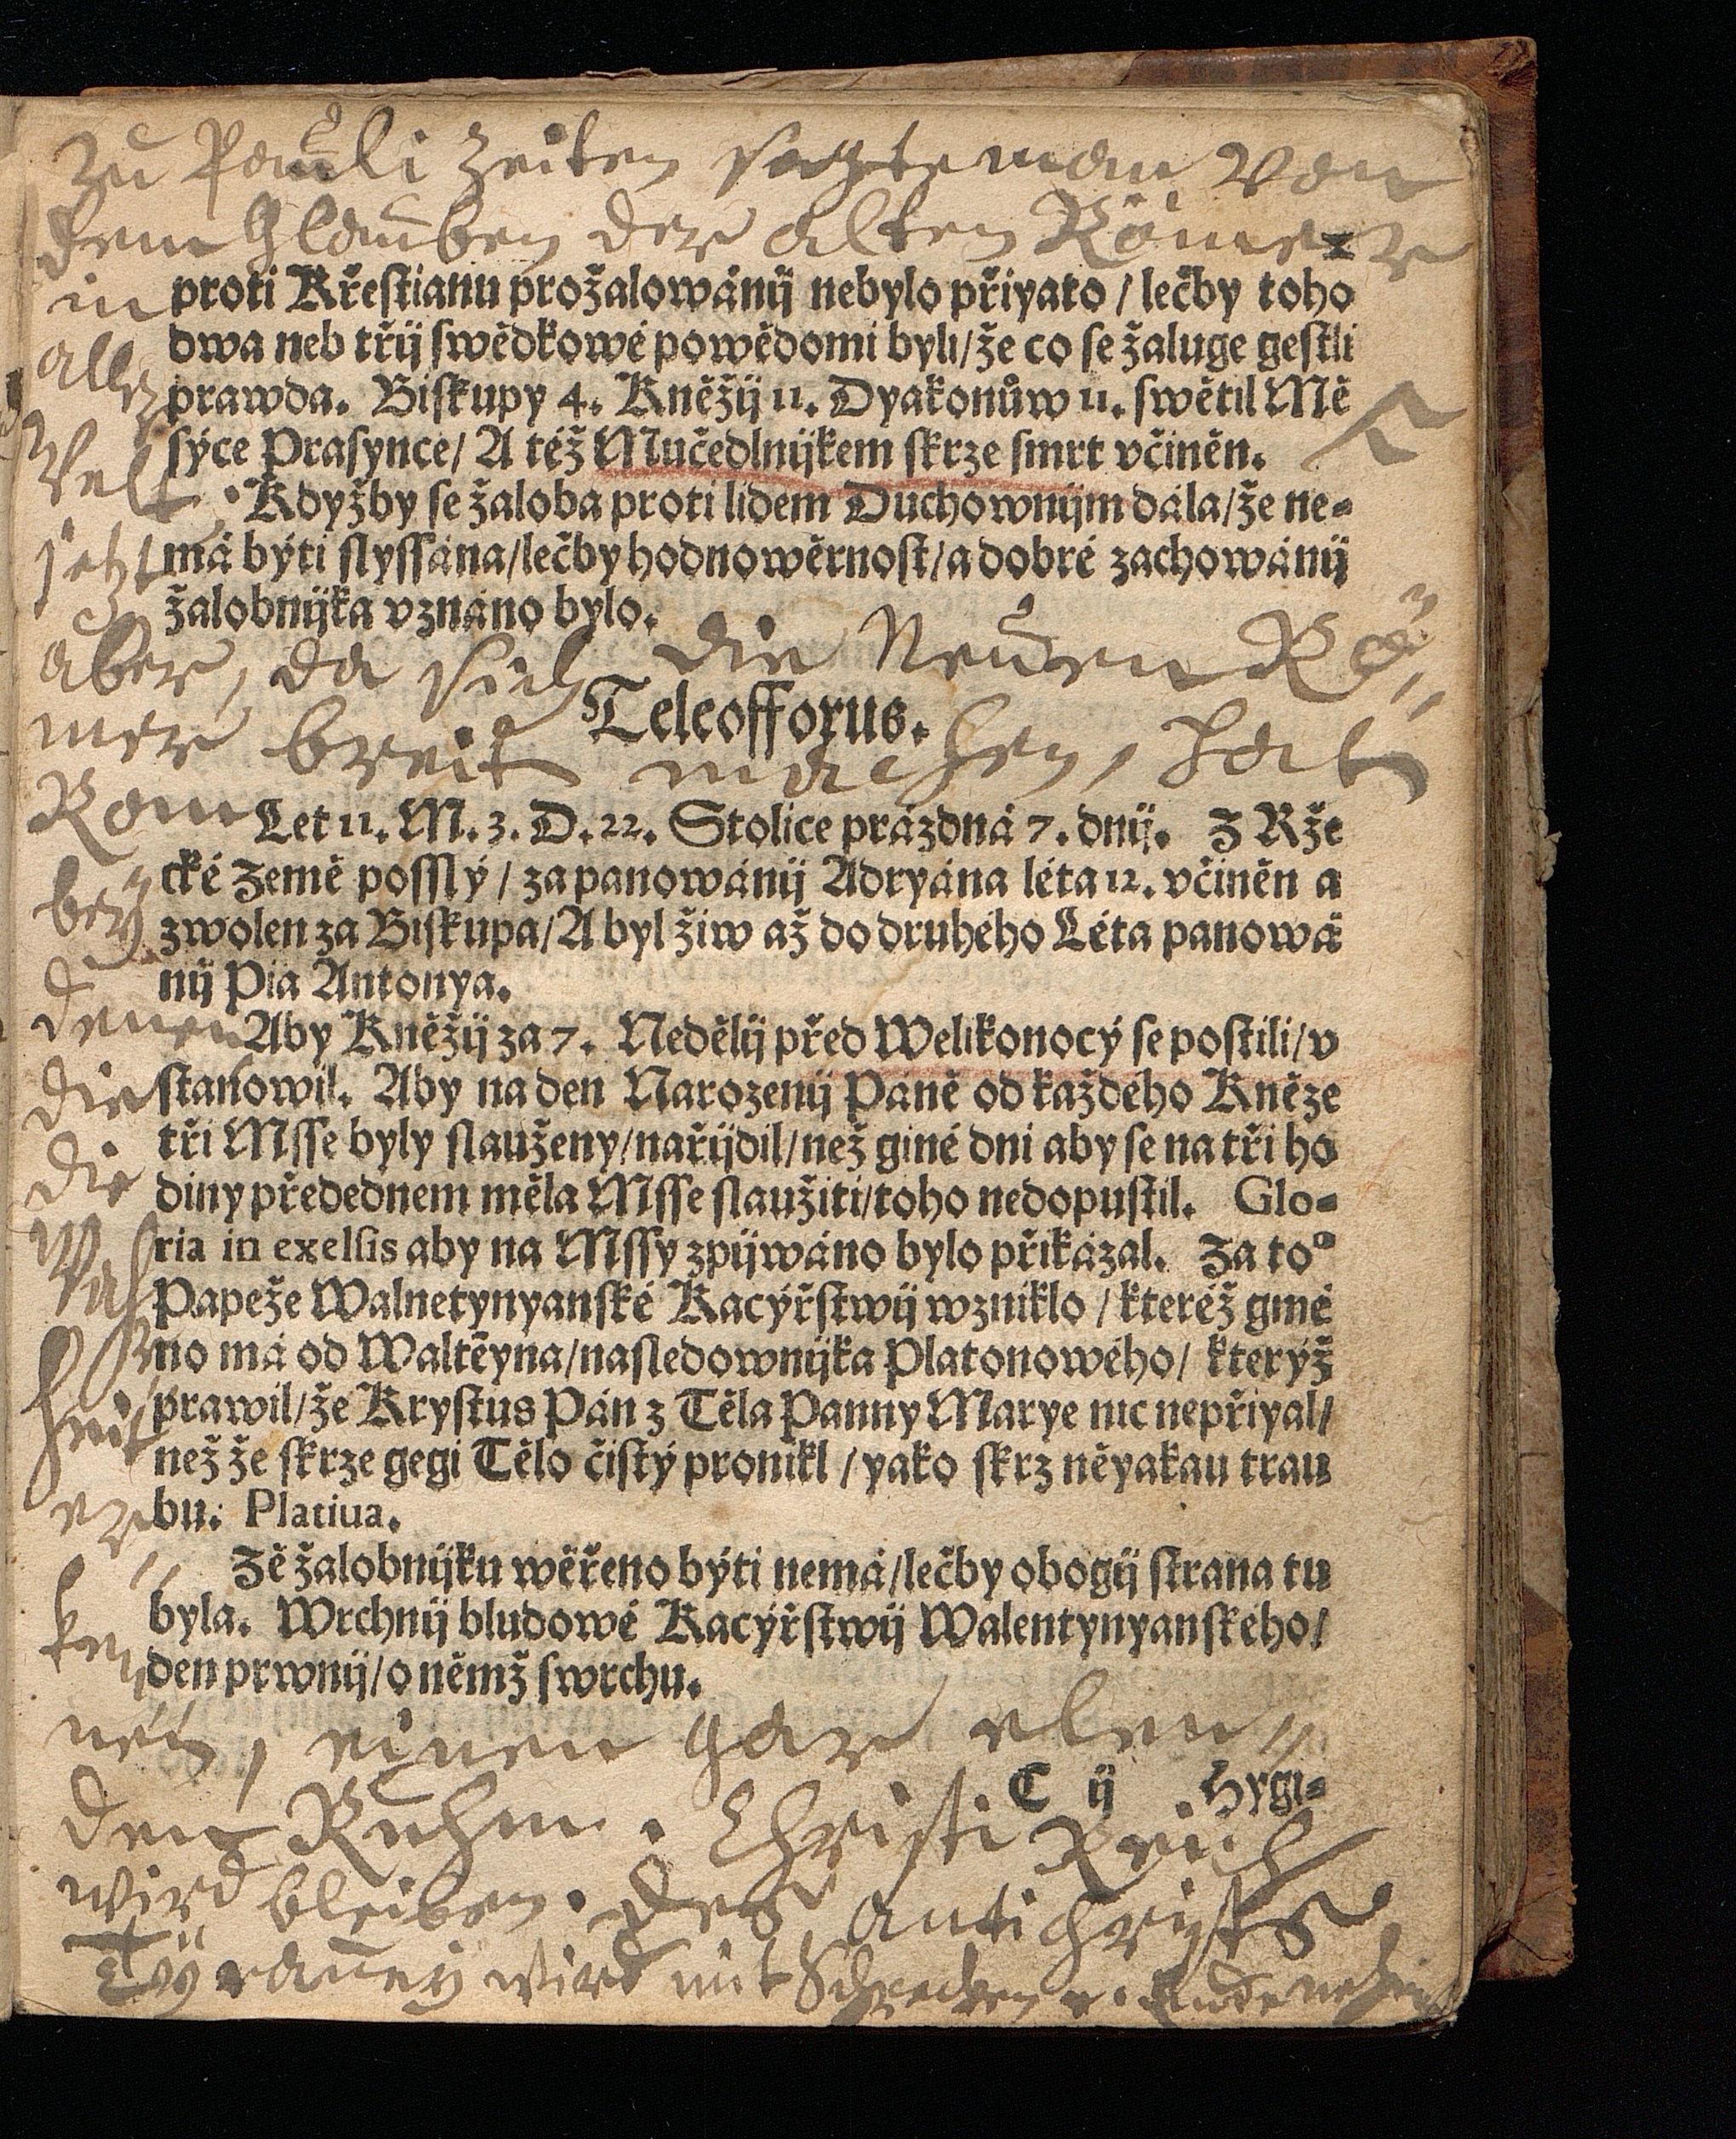 Zu Pauli Zeiten sagte man von
dem Glauben der alten Römer
in
proti Křestianu prožalowánij nebylo přiyato / lečby toho
aller
dwa neb třij swědkowé powědomi byli/že co se žaluge gestli
prawda. Biskupy 4. Kněžij 11. Dyakonůw 11. swětil Mě
Welt
sýce Prasynce/ A též Mučedlnijkem skrze smrt včiněn.
Kdyžby se žaloba proti lidem Duchownijm dála/že ne⸗
jetzt
má býti slyssána/lečby hodnowěrnost/a dobré zachowánij
žalobnijka vznáno bylo.
aber, da sich die Neuen Rö⸗
Teleofforus.
mer breit machen, hat
Rom
Let 11. M. 3. D. 22. Stolice prázdná 7. dnij. Z Rže
bey
cké Země posslý / za panowánij Adryána léta 12. včiněn a
zwolen za Biskupa/A byl žiw až do druhého Léta panowá
nij Pia Antonya.
denen
Aby Kněžij za 7. Nedělij před Welikonocý se postili/v
die
stanowil. Aby na den Narozenij Páně od každého Kněze
die
tři Msse byly slauženy/nařijdil/než giné dni aby se na tři ho
diny předednem měla Msse slaužiti/toho nedopustil. Glo⸗
Wahr
ria in exelsis aby na Mssy zpijwáno bylo přikázal. Za to°
Papeže Walnetynyanské Kacýřstwij wzniklo / kteréž gmé
no má od Waltēyna/nasledownijka Platonowého/ kterýž
heit
prawil/že Krystus Pán z Těla Panny Marye nic nepřiyal/
než že skrze gegi Tělo čistý pronikl / yako skrz něyakau trau
er⸗
bu. Platiua.
Zě žalobnijku wěřeno býti nemá/lečby obogij strana tu
ken
byla. Wrchnij bludowé Kacýřstwij Walentynyanského/
den prwnij/o němž swrchu.
nen, einen gar elen⸗
C ij Hygi⸗
den Ruhm. Christi Reich
wird bleiben. Des Antichrists
Tyranney wird mit Schrecken e. Ende nehmen